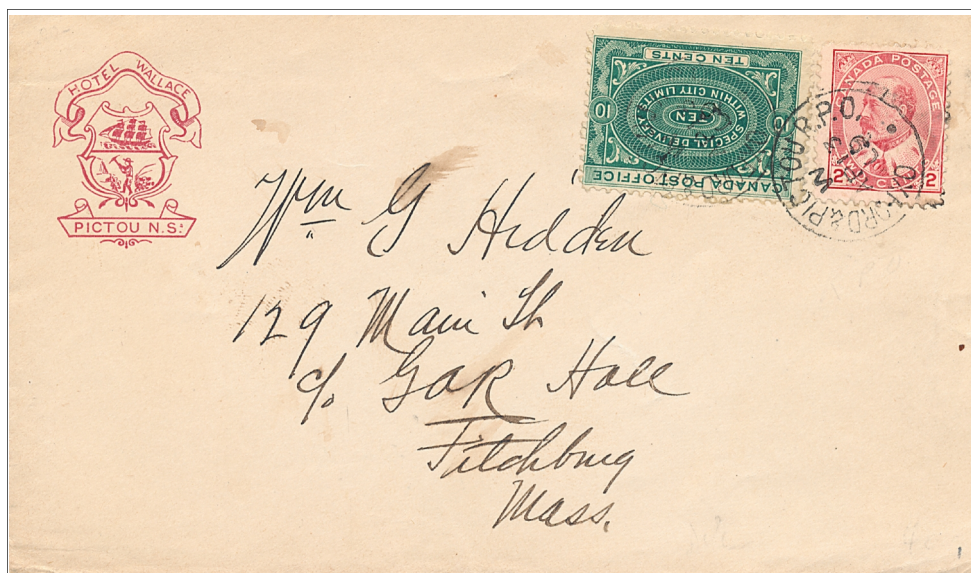 HOTEL WALLACE
PICTOU N.S.
CANADA POST OFFICE
SPECIAL DELIVERY
WITHIN CITY LIMITS
TEN
10
TEN CENTS
CANADA POSTAGE
2 CENTS 2
OXFORD & PICTOU R.P.O.
M
Wm G Hedden
129 Main St
c/o GAR Hall
Fitchburg
Mass.